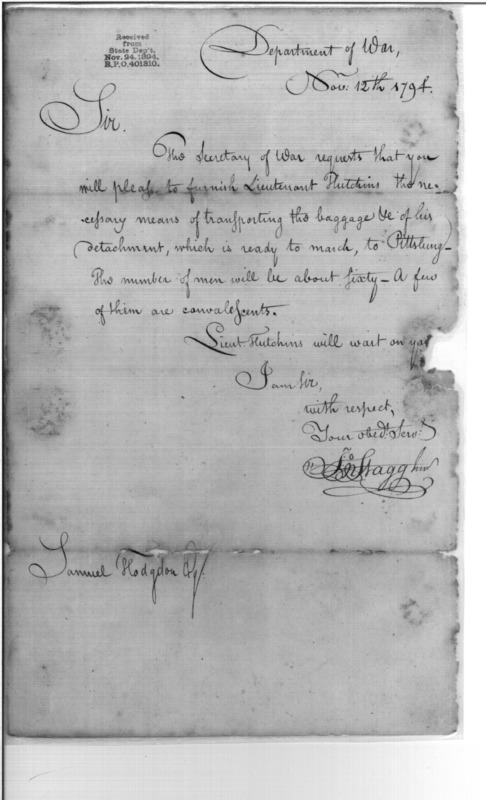 Received
from
State Dep't.
Nov. 24, 1894.
R.P.O. 401310.
Department of War,
Nov: 12th 1794.
Sir.
The Secretary of War requests that you
will please to furnish Lieutenant Hutchins the ne-
cessary means of transporting the baggage &c of his
detachment, which is ready to march, to Pittsburg -
The number of men will be about sixty - A few
of them are convalescents.
Lieut Hutchins will wait on you
I am Sir,
with respect,
Your obed: Serv:
Jno Stagg Junr
Samuel Hodgdon Esqr.